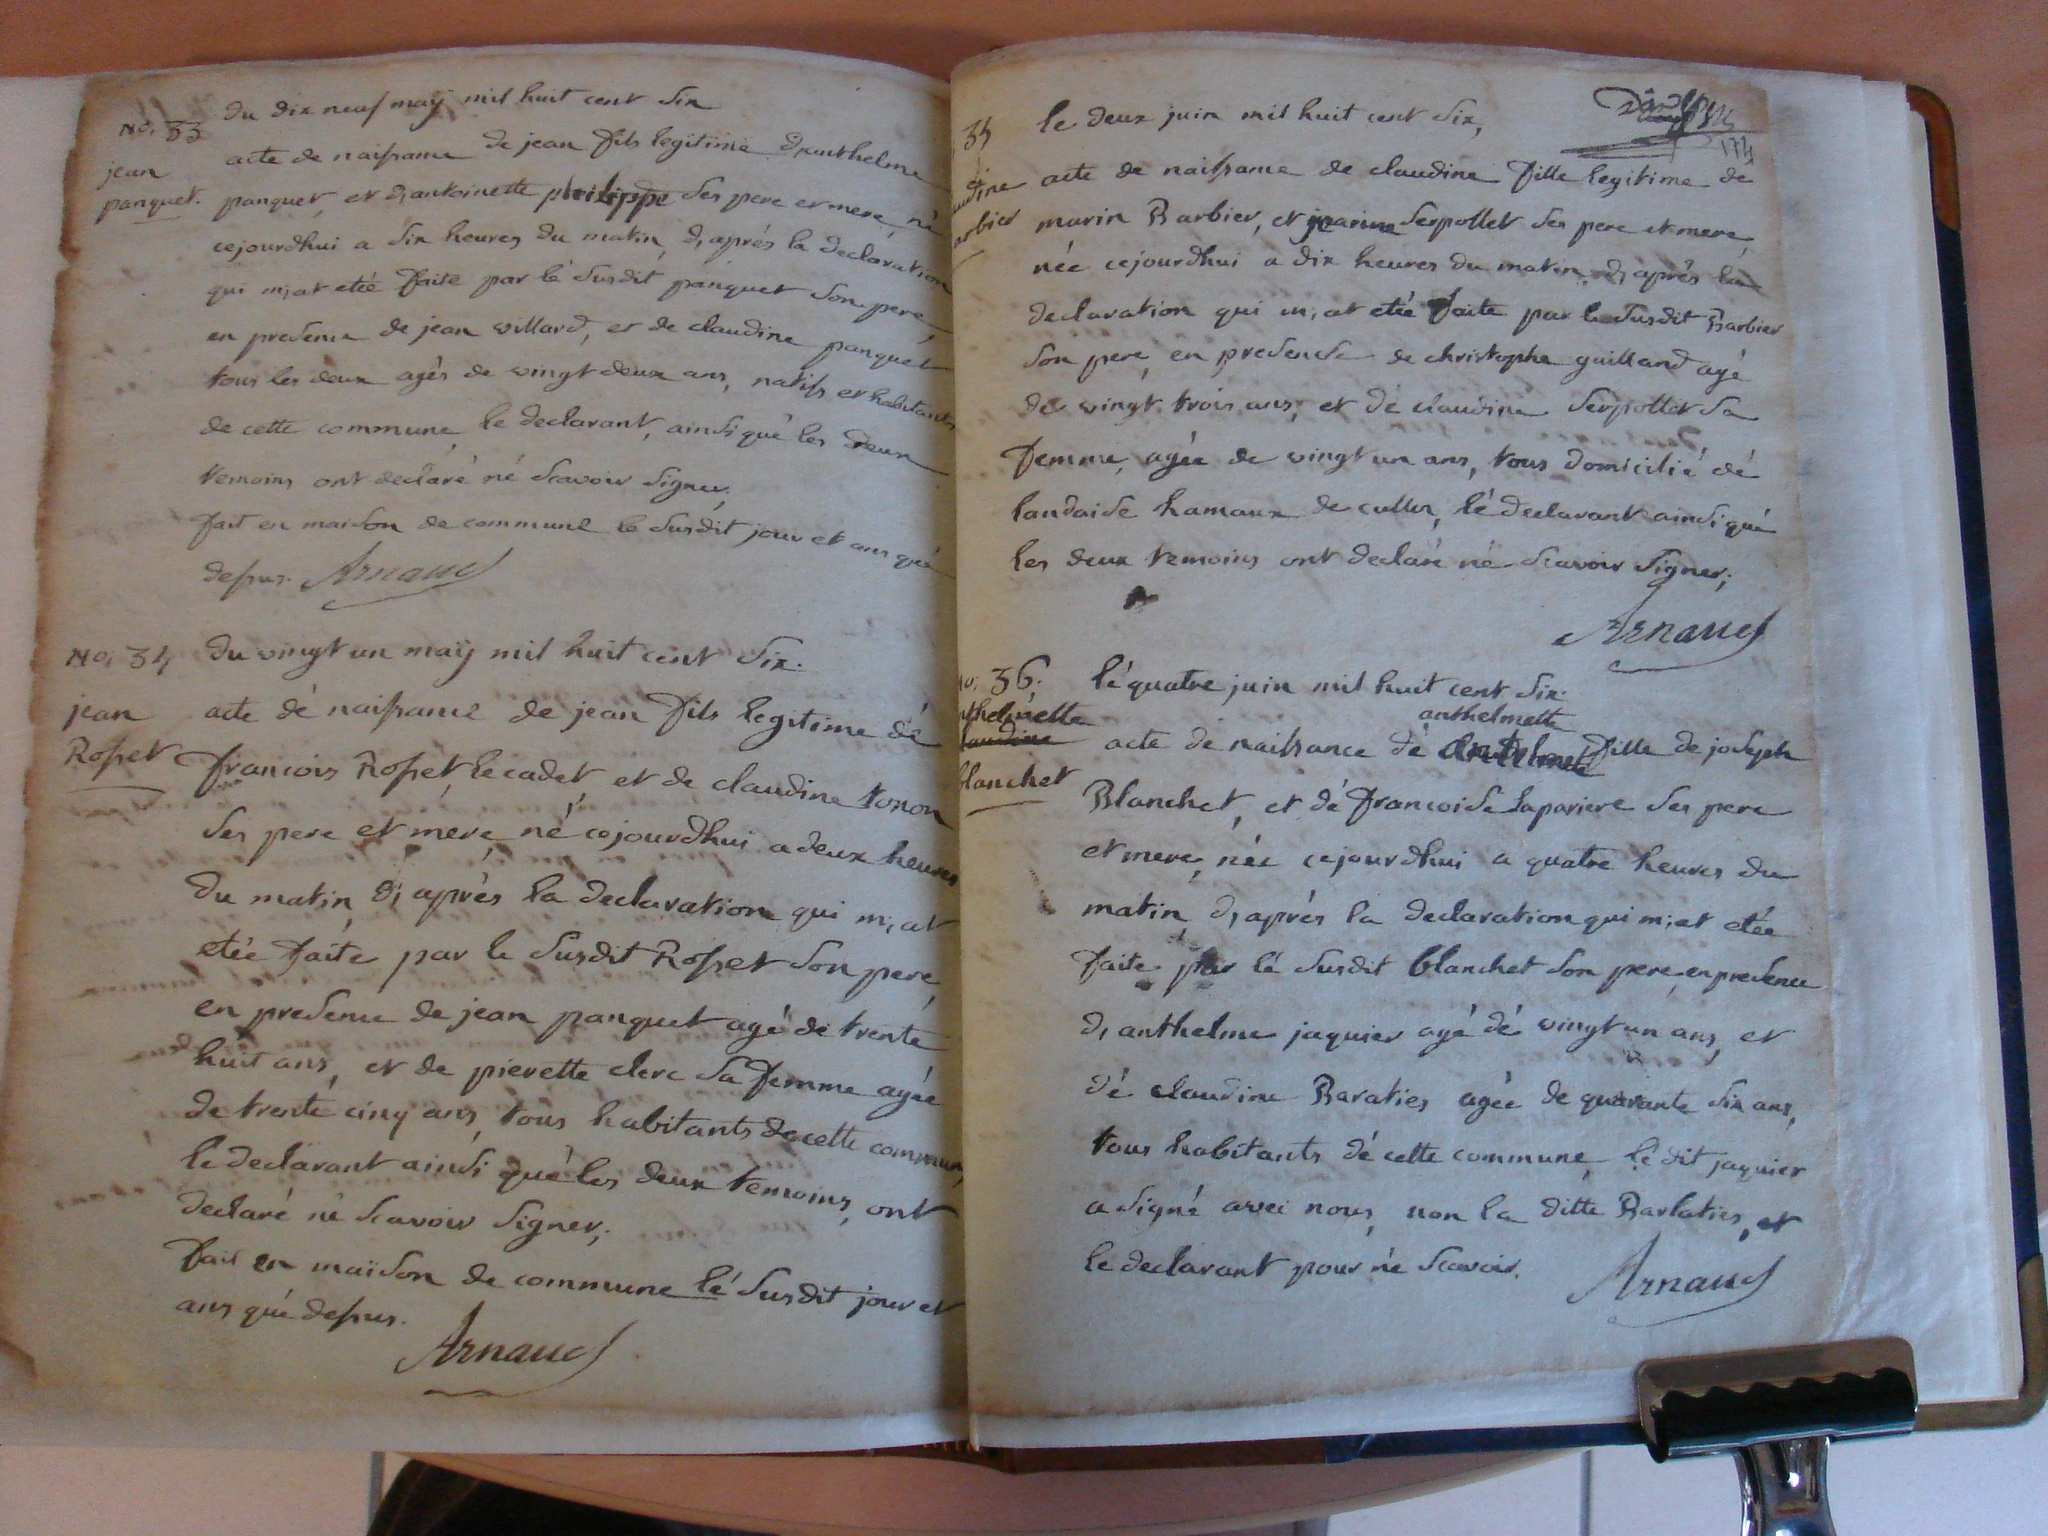 No. 33
jean
panquet.
du dix neuf maÿ mil huit cent Six
acte de naissance de jean fils legitime d,anthelme
panquet, et d,antoinette philippe Ses pere et mere, né
cejourdhui a Six heures du matin, d,aprés la declaration
qui m,at etée faite par lé Susdit panquet Son pere,
en presence de jean villard, et de claudine panquet
tous les deux agés de vingt deux ans, natifs et habitants
de cette commune, le declarant, ainsi qué les deux
temoins ont declaré né Scavoir Signer,
fait en maison de commune le Susdit jour et ans qué
dessus. Arnaud
No. 34
jean
Rosset
du vingt un maÿ mil huit cent Six.
acte dé naissance de jean fils legitime dé
francois Rosset, lecadet, et de claudine tonon
Ses pere et mere, né cejourdhui a deux heures
du matin, d,aprés la declaration qui m,at
etée faite par le Susdit Rosset Son pere,
en presence de jean panquet agé de trente
huit ans, et de pierette clerc Sa femme agée
de trente cinq ans, tous habitants de cette commune,
le declarant ainsi qué les deux temoins, ont
declaré né Scavoir Signer,
fait en maison de commune lé Susdit jour et
ans qué dessus.
Arnaud
174
35
le deux juin mil huit cent Six,
acte de naissance de claudine fille legitime de
marin Barbier, et marine Serpollet Ses pere et mere,
née cejourdhui a dix heures du matin, d,aprés la
declaration qui m,at etée faite par le Susdit Barbier
Son pere, en presence de christophe guilland agé
de vingt trois ans, et de claudine Serpollet Sa
femme, agée de vingt un ans, tous domicilié dé
landaise hamaux de culles, lé declarant ainsi qué
les deux temoins ont declaré né Scavoir Signer,
Arnaud
No. 36.
anthelmette
claudine
blanchet
lé quatre juin mil huit cent Six.
anthelmette
acte de naissance dé fille de joseph
Blanchet, et dé francoise Lapariere Ses pere
et mere, née cejourdhui a quatre heures du
matin, d,aprés la declaration qui m,at etée
faite par lé Susdit blanchet Son pere, en presence
d,anthelme jaquier agé dé vingt un ans, et
dé claudine Baraties agée de quarante Six ans,
tous habitants dé cette commune, le dit jaquier
a Signé avec nous, non la ditte Barlaties, et
le declarant pour né Scavoir.
Arnaud